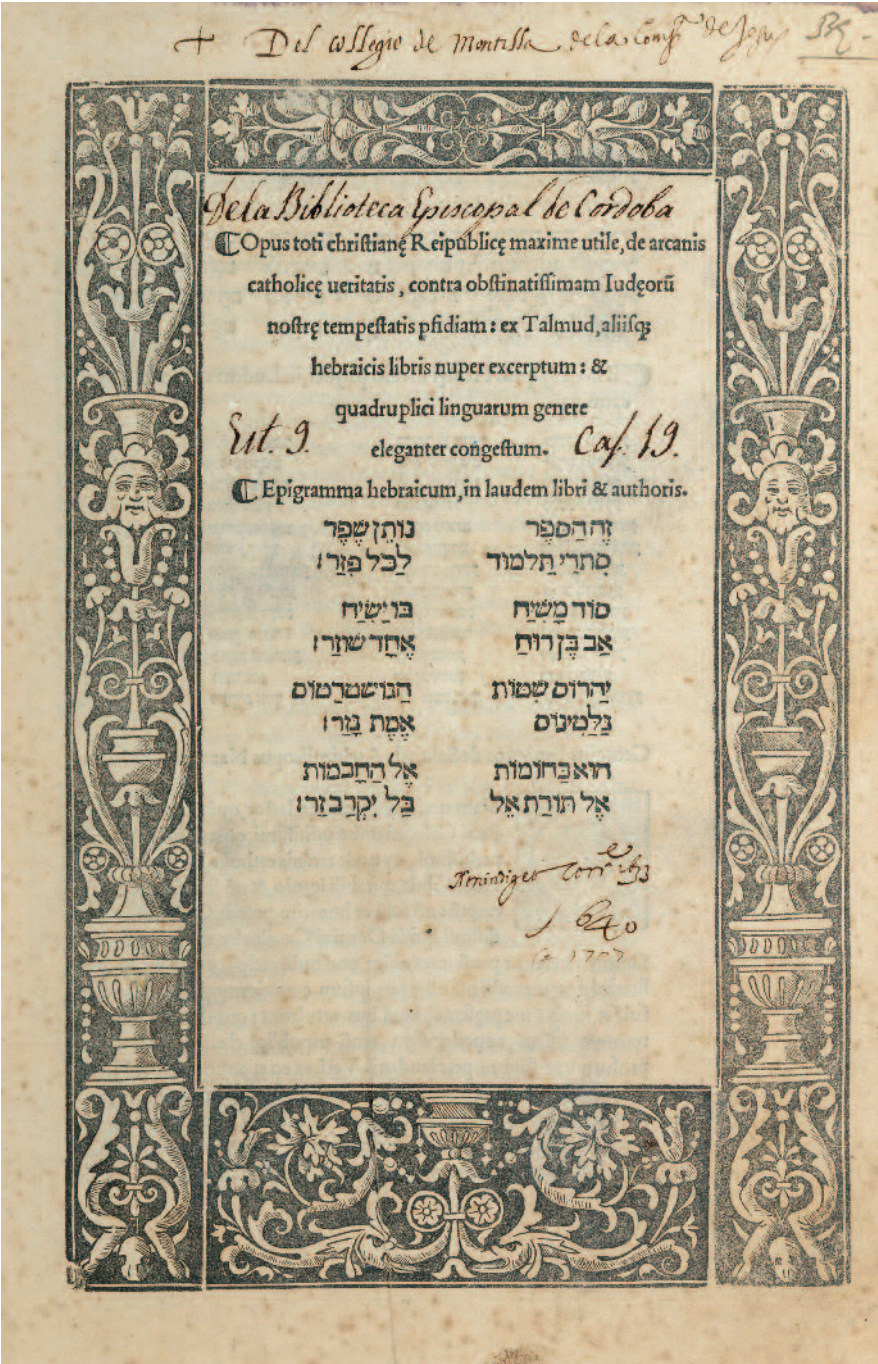 + Del collegio de Montilla de la Comp.ª de Jesus
De la Biblioteca Episcopal de Cordoba
Opus toti christianę Reipublicę maxime utile, de arcanis
catholicę ueritatis, contra obstinatissimam Iudęorū
nostrę tempestatis pfidiam: ex Talmud, aliisq;
hebraicis libris nuper excerptum: &
quadruplici linguarum genere
eleganter congestum.
Est. 9. Caj. 19.
Epigramma hebraicum, in laudem libri & authoris.
זֶה הַסֵפֶר נוֹתֵן שֶׁפֶר
סִתְרֵי תַלְמוּד לַכֹּל פִּזַר:
סוֹד מָשִׁיחַ בּוֹ יַשִׂיחַ
אַב בֶּן רוּחַ אֶחָד שׁוּזַר:
יַהֲרוֹס שִׁטוֹת הַגוֹשְׁטְרָטוֹס
גַלַטִינוֹס אֱמֶת גָזַר:
הוּא כַּחוֹמוֹת אֶל הַחָכְמוֹת
אֶל תּוֹרַת אֵל בַּל יִקְרַב זַר:
1640
1707